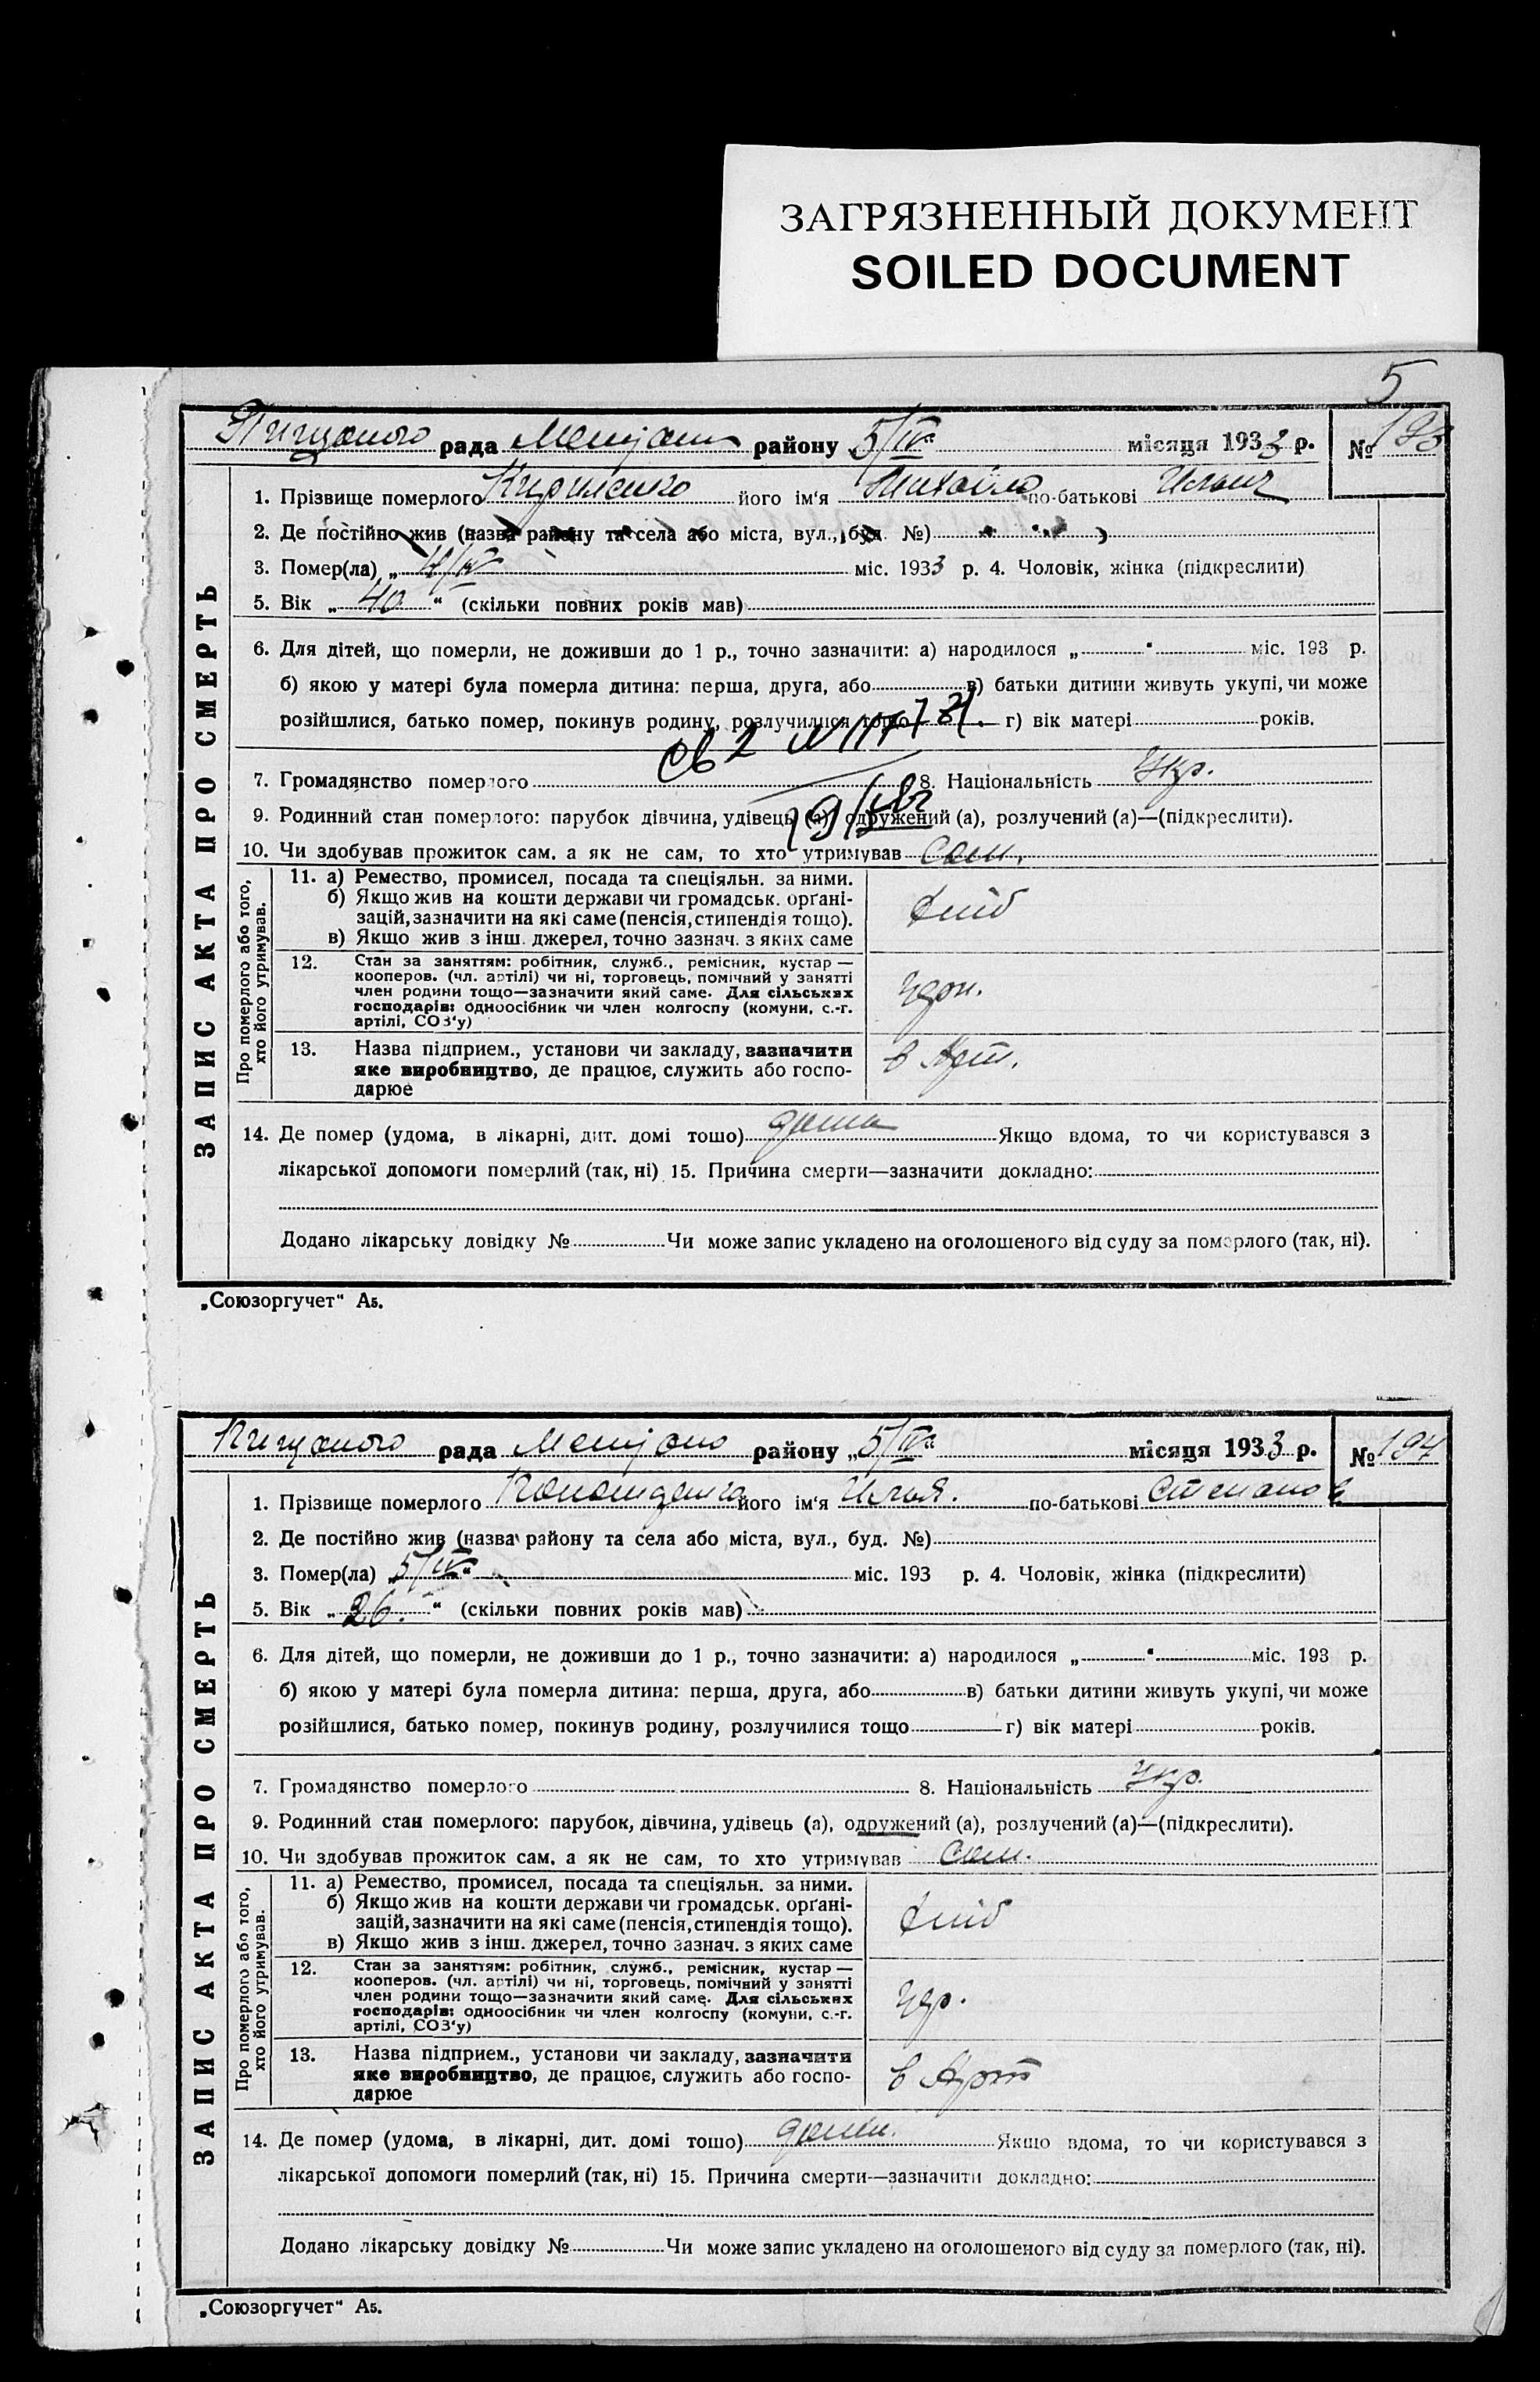 ЗАГРЯЗНЕННЫЙ ДОКУМЕНТ
SOILED DOCUMENT
5
рада району 5/IV місяця 1933 р. № 193
ЗАПИС АКТА ПРО СМЕРТЬ
1. Прізвище померлого Кириленко його ім'я Михайло по-батькові
2. Де постійно жив (назва району та села або міста, вул., буд. №)
3. Помер(ла) „ 4/IV міс. 1933 р. 4. Чоловік, жінка (підкреслити)
5. Вік „ 40 “ (скільки повних років мав)
6. Для дітей, що померли, не доживши до 1 р., точно зазначити: а) народилося „ “ міс. 193 р.
б) якою у матері була померла дитина: перша, друга, або в) батьки дитини живуть укупі, чи може
розійшлися, батько помер, покинув родину, розлучилися тощо г) вік матері років.
7. Громадянство померлого 8. Національність Укр.
9. Родинний стан померлого: парубок дівчина, удівець (а), одружений (а), розлучений (а)—(підкреслити).
10. Чи здобував прожиток сам, а як не сам, то хто утримував Сам.
Про померлого або того, хто його утримував.
11. а) Ремество, промисел, посада та спеціяльн. за ними.
б) Якщо жив на кошти держави чи громадськ. орґані-
зацій, зазначити на які саме (пенсія, стипендія тощо).
в) Якщо жив з інш. джерел, точно зазнач. з яких саме
хліб
12. Стан за заняттям: робітник, служб., ремісник, кустар —
кооперов. (чл. артілі) чи ні, торговець, помічний у занятті
член родини тощо—зазначити який саме. Для сільських
господарів: одноосібник чи член колгоспу (комуни, с.-г.
артілі, СОЗ'у)
13. Назва підприєм., установи чи закладу, зазначити
яке виробництво, де працює, служить або госпо-
дарює
в Арт.
14. Де помер (удома, в лікарні, дит. домі тощо) дома Якщо вдома, то чи користувався з
лікарської допомоги померлий (так, ні) 15. Причина смерти—зазначити докладно:
Додано лікарську довідку № Чи може запис укладено на оголошеного від суду за померлого (так, ні).
„Союзоргучет“ А5.
рада району „5/IV“ місяця 1933 р. № 194
ЗАПИС АКТА ПРО СМЕРТЬ
1. Прізвище померлого його ім'я Илья. по-батькові Степанов
2. Де постійно жив (назва району та села або міста, вул., буд. №)
3. Помер(ла) 5/IV“ міс. 193 р. 4. Чоловік, жінка (підкреслити)
5. Вік „ 26. “ (скільки повних років мав)
6. Для дітей, що померли, не доживши до 1 р., точно зазначити: а) народилося „ “ міс. 193 р.
б) якою у матері була померла дитина: перша, друга, або в) батьки дитини живуть укупі, чи може
розійшлися, батько помер, покинув родину, розлучилися тощо г) вік матері років.
7. Громадянство померлого 8. Національність Укр.
9. Родинний стан померлого: парубок, дівчина, удівець (а), одружений (а), розлучений (а)—(підкреслити).
10. Чи здобував прожиток сам, а як не сам, то хто утримував Сам.
Про померлого або того, хто його утримував.
11. а) Ремество, промисел, посада та спеціяльн. за ними.
б) Якщо жив на кошти держави чи громадськ. орґані-
зацій, зазначити на які саме (пенсія, стипендія тощо).
в) Якщо жив з інш. джерел, точно зазнач. з яких саме
хліб
12. Стан за заняттям: робітник, служб., ремісник, кустар —
кооперов. (чл. артілі) чи ні, торговець, помічний у занятті
член родини тощо—зазначити який саме. Для сільських
господарів: одноосібник чи член колгоспу (комуни, с.-г.
артілі, СОЗ'у)
13. Назва підприєм., установи чи закладу, зазначити
яке виробництво, де працює, служить або госпо-
дарює
в Арт
14. Де помер (удома, в лікарні, дит. домі тощо) дома. Якщо вдома, то чи користувався з
лікарської допомоги померлий (так, ні) 15. Причина смерти—зазначити докладно:
Додано лікарську довідку № Чи може запис укладено на оголошеного від суду за померлого (так, ні).
„Союзоргучет“ А5.